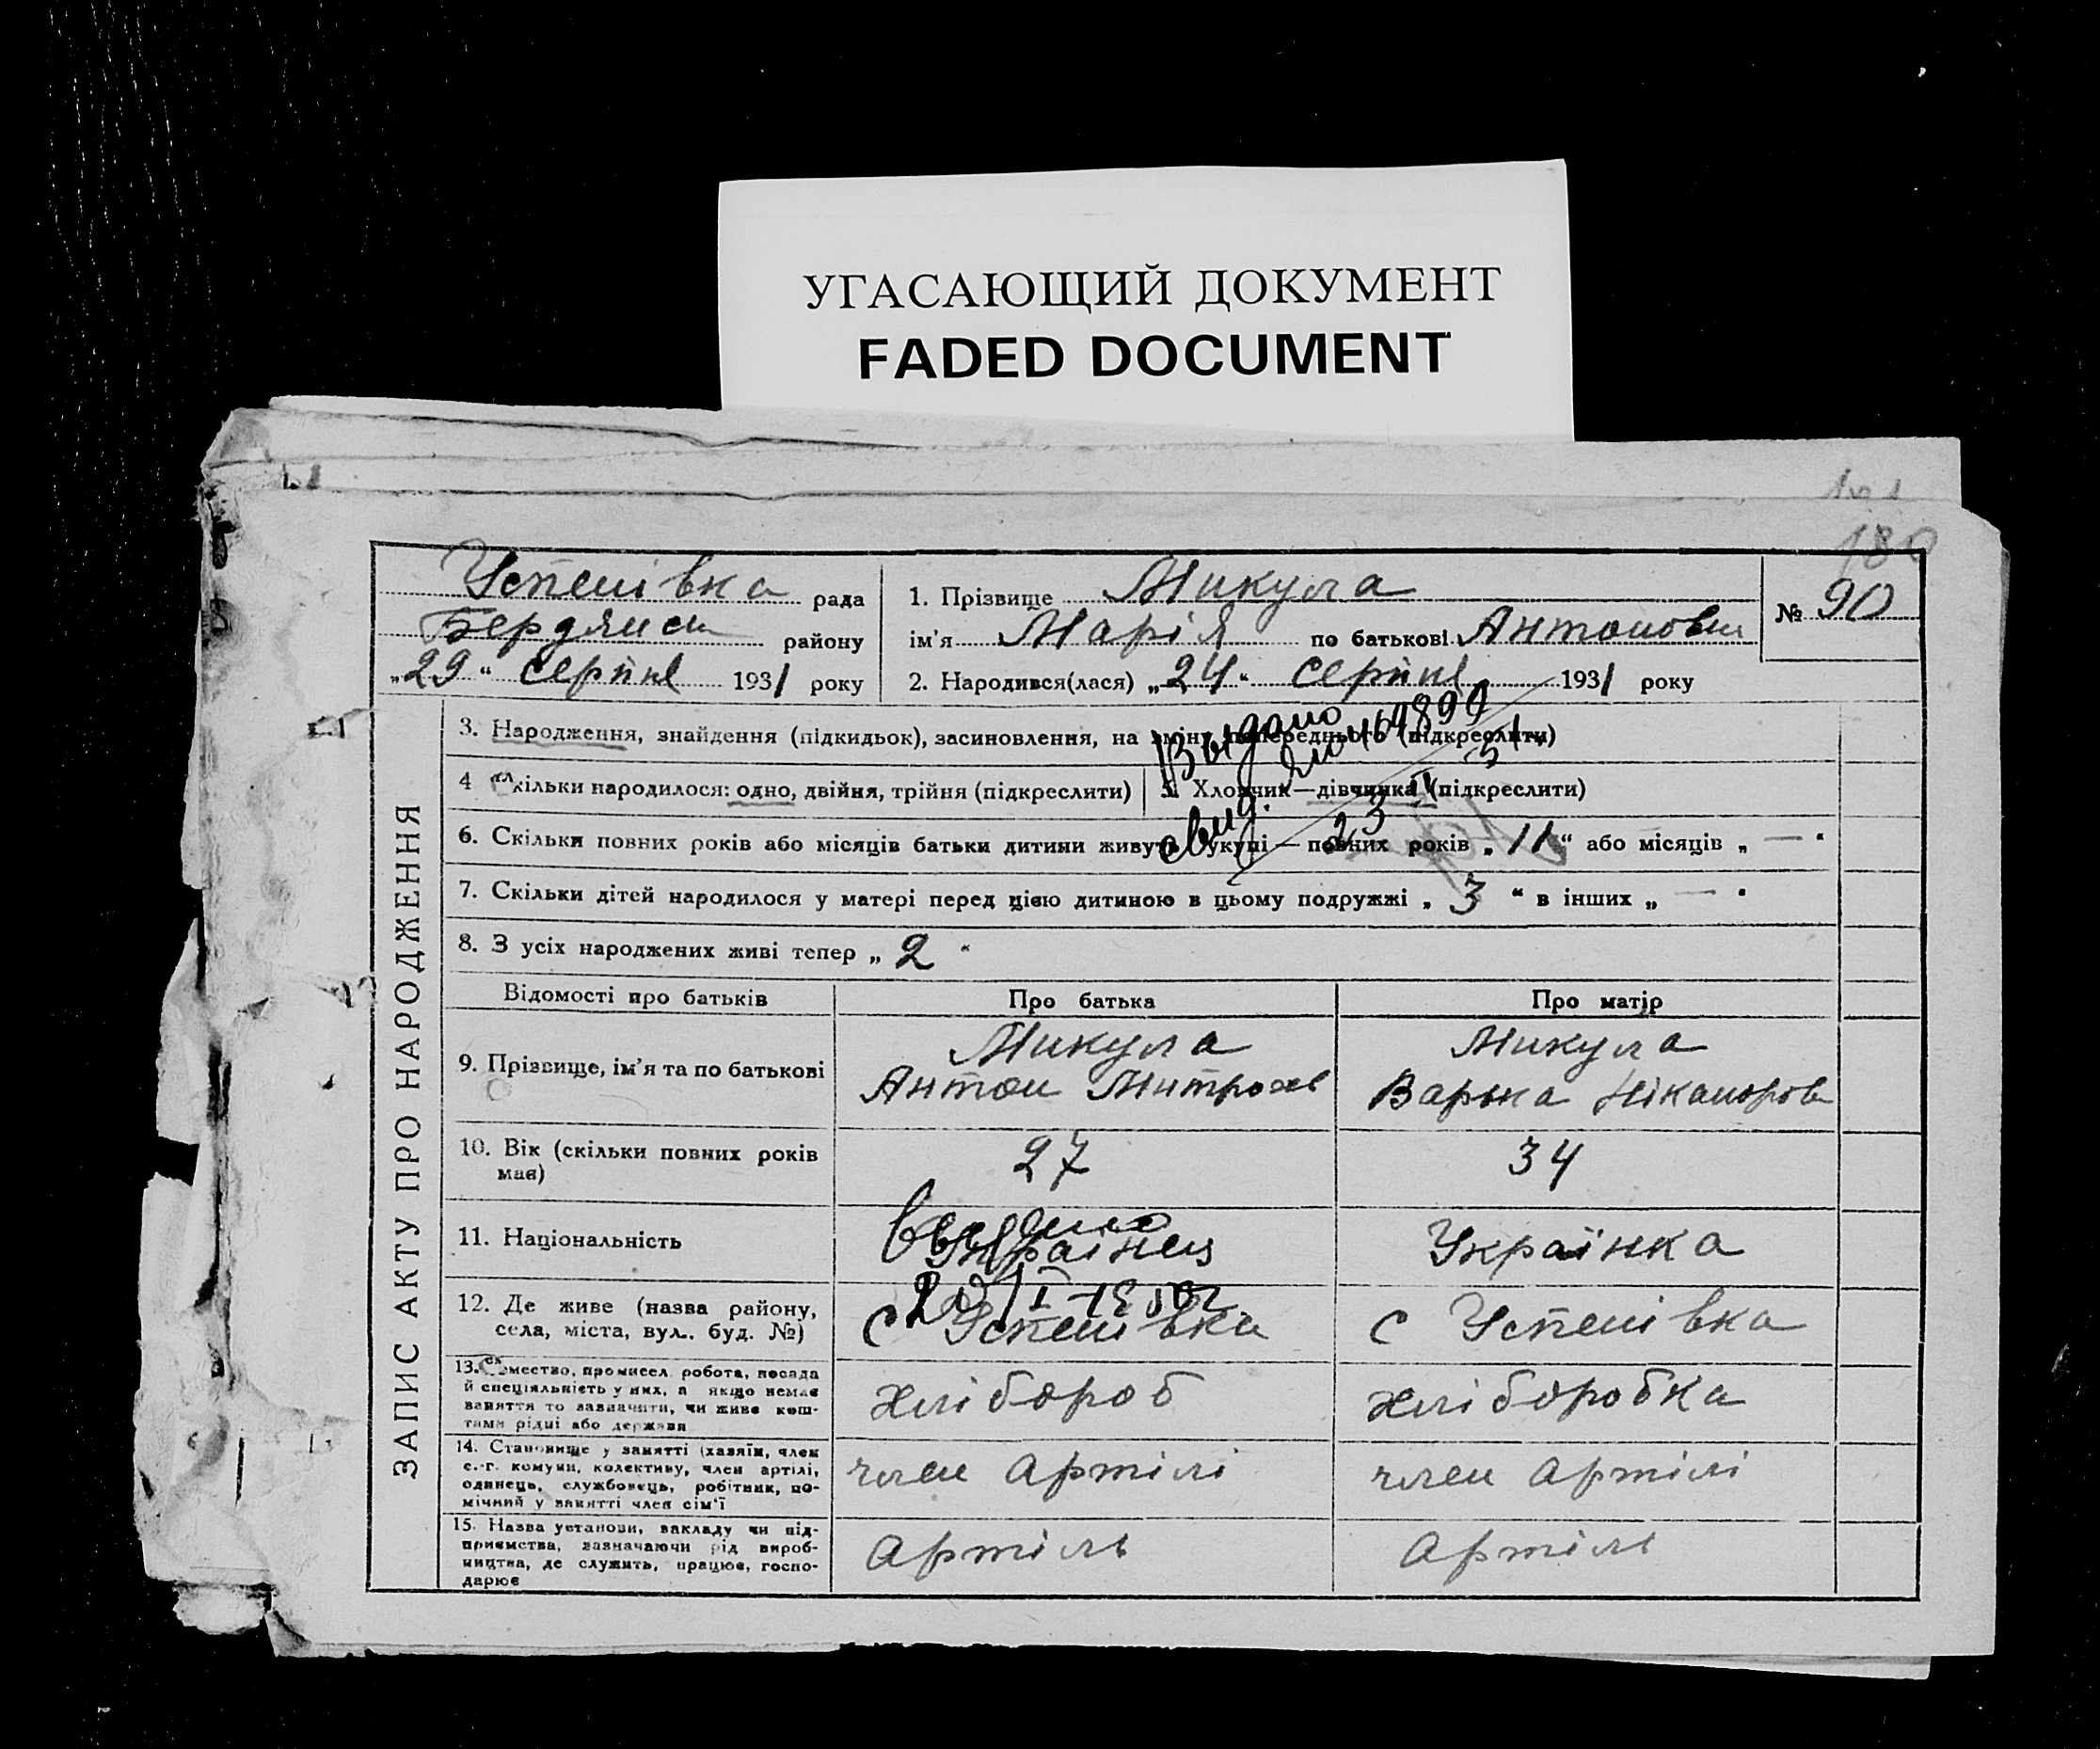 УГАСАЮЩИЙ ДОКУМЕНТ
FADED DOCUMENT
180
Успенівка рада
Бердянськ району
„29“ серпня 1931 року
1. Прізвище Микула
ім'я Марія по батькові Антоновна
2. Народився(лася) „24“ серпня 1931 року
№ 90
ЗАПИС АКТУ ПРО НАРОДЖЕННЯ
3. Народження, знайдення (підкидьок), засиновлення, на зміну попереднього (підкреслити)
Выдано
4 Скільки народилося: одно, двійня, трійня (підкреслити)
5. Хлопчик—дівчинка (підкреслити)
свид.
6. Скільки повних років або місяців батьки дитини живуть укупі — повних років „11“ або місяців „—“
7. Скільки дітей народилося у матері перед цією дитиною в цьому подружжі „3“ в інших „—“
8. З усіх народжених живі тепер „2“
Відомості про батьків
Про батька
Про матір
9. Прізвище, ім'я та по батькові
Микула
Антон Митроф
Микула
Варька Ніканоров
10. Вік (скільки повних років
має)
27
34
11. Національність
выдано
Українец
Українка
12. Де живе (назва району,
села, міста, вул. буд. №)
с Успенівка
с Успенівка
13. Ремество, промисел, робота, посада
й спеціяльність у них, а якщо немає
заняття то зазначити, чи живе кош-
тами рідні або держави
хлібороб
хліборобка
14. Становище у занятті (хазяїн, член
с.-г. комуни, колективу, член артілі,
одинець, службовець, робітник, по-
мічний у занятті член сім'ї
член артілі
член артілі
15. Назва установи, закладу чи під-
приємства, зазначаючи рід вироб-
ництва, де служить, працює, госпо-
дарює
Артіль
Артіль